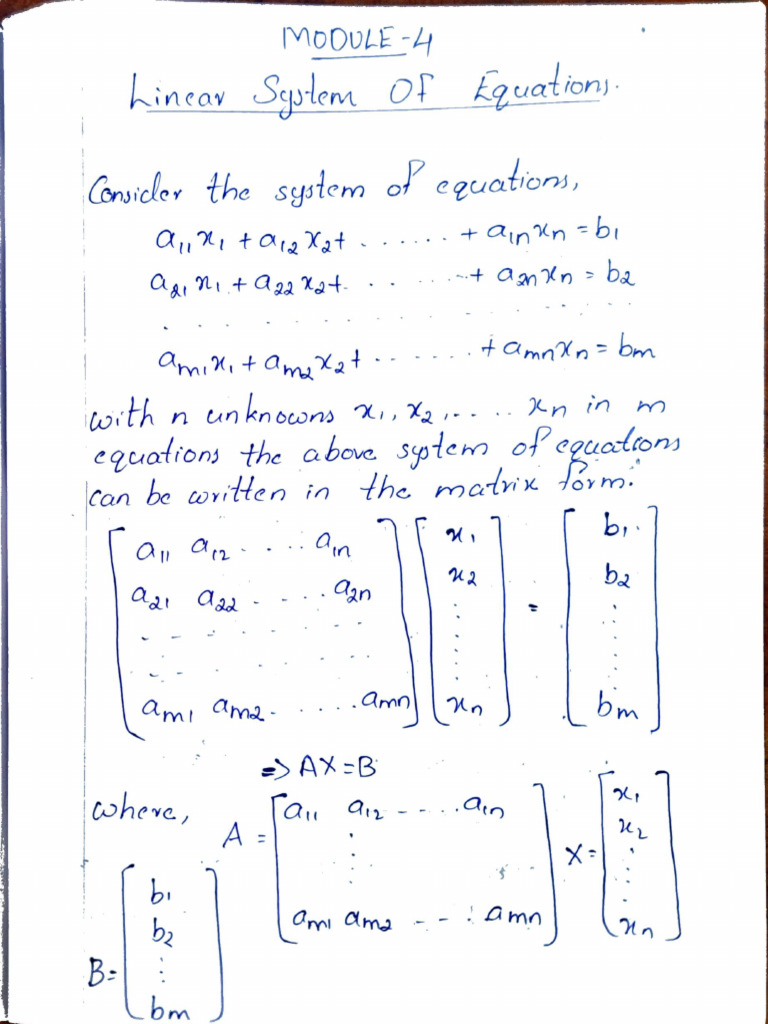 MODULE-4
Linear System Of Equations.
Consider the system of equations,
a11 x1 + a12 x2 + ....... + a1n xn = b1
a21 x1 + a22 x2 + ....... + a2n xn = b2
. . . . . . . . . . . . . . .
am1 x1 + am2 x2 + ....... + amn xn = bm
with n unknowns x1, x2, ..... xn in m
equations the above system of equations
can be written in the matrix form.
[ a11 a12 ..... a1n ] [ x1 ] [ b1 ]
[ a21 a22 ..... a2n ] [ x2 ] = [ b2 ]
[ . . . . . . . . ] [ ⋮ ] [ ⋮ ]
[ am1 am2 ..... amn ] [ xn ] [ bm ]
=> AX = B
where, A = [ a11 a12 ----- a1n ] X = [ x1 ]
[ ⋮ ] [ x2 ]
[ ⋮ ] [ ⋮ ]
[ am1 am2 ---- amn ] [ xn ]
B = [ b1 ]
[ b2 ]
[ ⋮ ]
[ bm ]